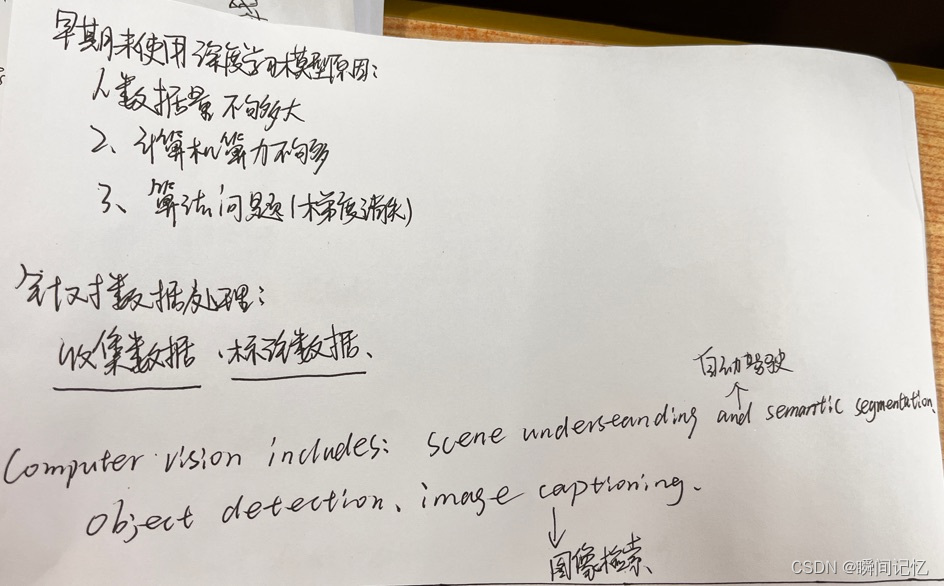 早期未使用深度学习模型原因:
1、数据量不够大
2、计算机算力不够
3、算法问题(梯度消失)
针对数据处理:
收集数据、标注数据、
自动驾驶
Computer vision includes: scene understanding and semantic segmentation、
object detection、image captioning.
图像检索
CSDN @瞬间记忆